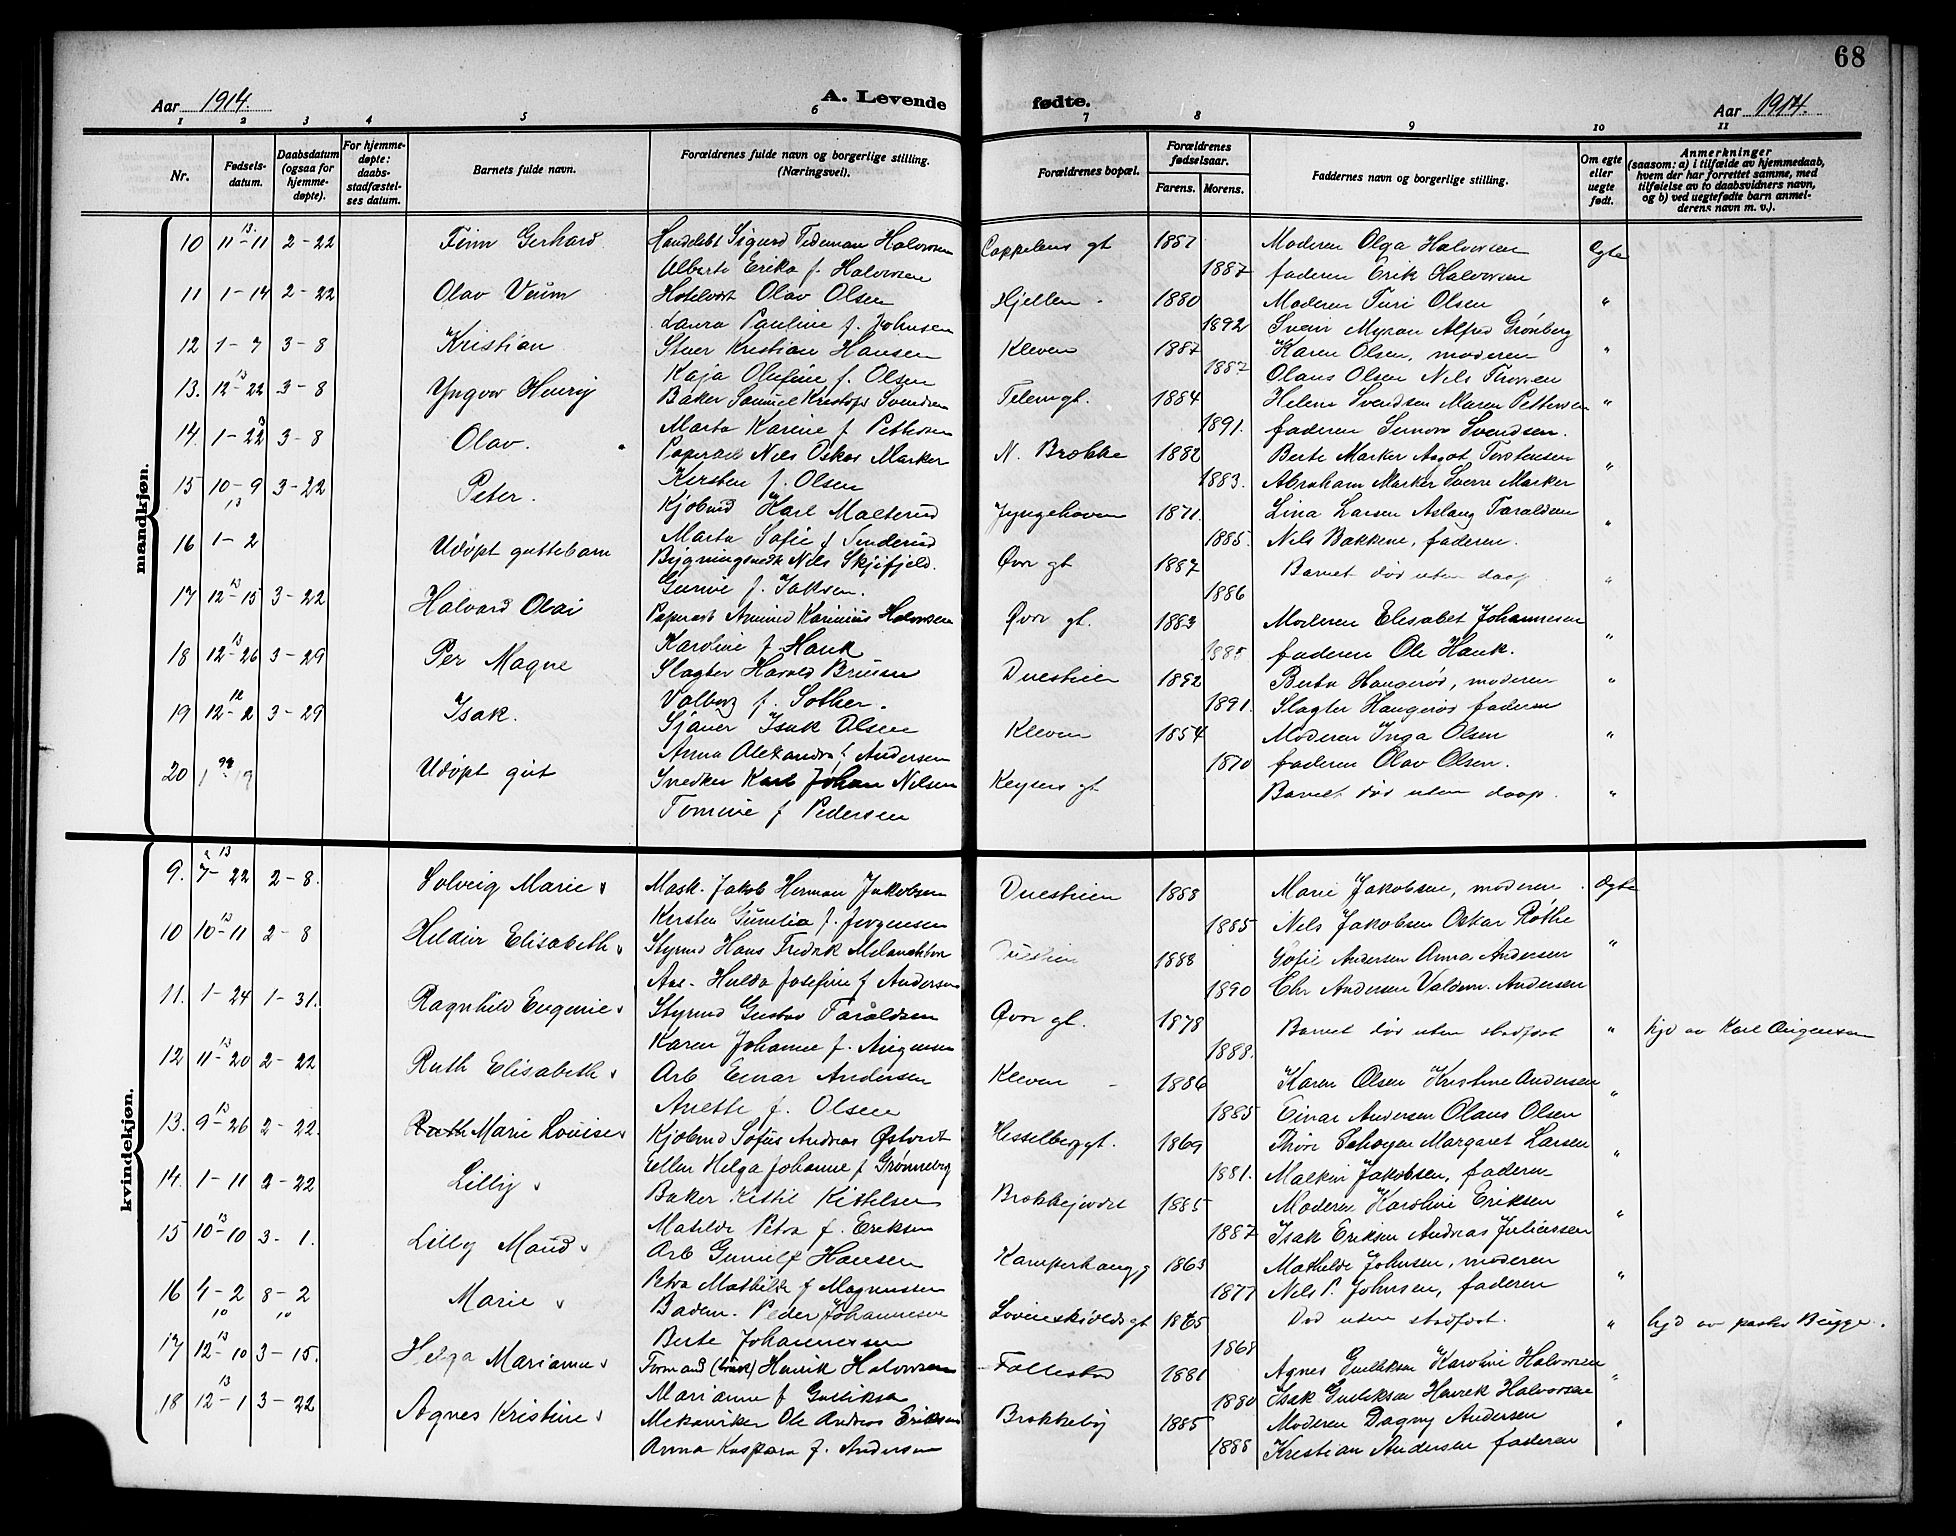 68
Aar 1914. A. Levende fødte. Aar 1914.
1 2 3 4 5 6 7 8 9 10 11
Nr. Fødsels-datum. Daabsdatum (ogsaa for hjemme-døpte). For hjemme-døpte: daabs-stadfæstel-ses datum. Barnets fulde navn. Forældrenes fulde navn og borgerlige stilling. (Næringsvei). Forældrenes bopæl. Forældrenes fødselsaar. Farens. Morens. Faddernes navn og borgerlige stilling. Om egte eller uegte født. Anmerkninger (saasom: a) i tilfælde av hjemmedaab, hvem der har forrettet samme, med tilføielse av to daabsvidners navn, og b) ved uegtefødte barn anmel-derens navn m. v.).
mandkjøn.
10 11-11 13 2-22 Finn Gerhard Handelsbt Sigurd Tideman Halvorsen Cappelens gt 1887 Moderen Olga Halvorsen Egte
Alberta Erika f. Halvorsen 1887 faderen Erik Halvorsen
11 1-14 2-22 Olav Veum Hotelvært Olav Olsen Hjellen 1880 Moderen Turi Olsen "
Laura Pauline f. Johnsen 1892 Svein Myran Alfred Grønberg
12 1-7 3-8 Kristian Stuer Kristian Hansen Kleven 1887 Karen Olsen, moderen "
Kaja Olufine f. Olsen 1887 Olaus Olsen Nils Thovsen
13. 12-22 13 3-8 Yngvar Henry Baker Samuel Kristofer Svendsen Telemgt. 1884 Helene Svendsen Maren Pettersen "
Marta Karine f Pettersen 1891. faderen Simon Svendsen.
14. 1-22 3-8 Olav. Nils Oskar Marker N. Brekke 1882 Berte Marker Aagot Torstensen "
Kirsten f. Olsen 1883. Abraham Marker Sverre Marker
15 10-9 13 3-22 Peter. Kjøbmd Karl Malterud Jyngehoven 1871. Lina Larsen Aslaug Taraldsen "
Marta Sofie f Sunderud 1885. Nils Bakkene, faderen.
16 1-2 Udøpt guttebarn Bygningssnedk Nils Skjifjeld. Øvre gt 1887 Barnet død uten daap "
Gunvie f. Jaksen. 1886
17 12-15 13 3-22 Halvard Olai Paperarb Karinius Halvorsen Øvre gt. 1883 Moderen Elisabet Johannesen "
Karoline f. Hauk 1885 faderen Ole Hauk.
18 12-26 13 3-29 Per Magne Slagter Harald Bruun Duestien 1892 Berta Haugerød, moderen "
Valborg f. Sother. 1891. Slagter Haugerød faderen
19 12-2 12 3-29 Isak. Sjauer Isak Olsen Kleven 1854 Moderen Inga Olsen "
Anna Alexandra f Andersen 1870 faderen Olav Olsen.
20 Udøpt gut Snedker Karl Johan Nilsen Keysers gt Barnet død uten daap. "
Tomine f Pedersen
kvindekjøn.
9. 7-22 13 2-8. Solveig Marie Mask. Jakob Herman Jakobsen Duestien 1888 Marie Jakobsen, moderen Egte
Kirsten Gunilia f. Jørgensen 1885 Nils Jakobsen Oskar Røthe
10 10-11 13 2-8 Heldur Elisabeth Styrmd Hans Fredrik Melanchton Duestien 1888 Sofie Andersen Anna Andersen "
Aas- Hulda Josefine f Andersen 1890 Chr Andersen Valdem. Andersen
11. 1-24 1-31. Ragnhild Eugenie Styrmd Gustav Taraldsen Øvre gt. 1878 Barnet død uten stadfæst " hjd av Karl Jørgensen
Karen Johanne f. Jørgensen 1888.
12 11-20 13 2-22 Ruth Elisabeth Arb Einar Andersen Kleven 1886 Karen Olsen Kristine Andersen "
Anette f. Olsen 1885 Einar Andersen Olaus Olsen
13. 9-26 13 2-22. Ruth Marie Louise Kjøbmd Sofus Andreas Østvedt Hesselberggt. 1869 Thøre Margaret Larsen "
Ellen Helga Johanne f Grønneberg 1881. Malkin Jakobsen, faderen
14. 1-11 2-22 Lilly Baker Kittil Kittelsen Brekkejordet 1885 Moderen Karoline Eriksen "
Matilde Petra f. Eriksen 1887 Isak Eriksen Andreas Juliussen
15 10-10 13 3-1. Lilly Maud Arb Gunulf Hansen Kamperhaugg 1863 Mathilde Johnsen, moderen "
Petra Mathilde f Magnussen 1877 Nils P. Johnsen, faderen
16 4-2 10 8-2 10 Marie Badem. Peder Johannesen Løvenskioldsgt 1865 Død uten stadfæst. " hjd av pastor Bugge.
Berte Johannessen 1868
17 12-10 13 3-15. Helga Marianne Formand (bruk) Henrik Halvorsen Follestad 1881 Agnes Gulliksen Karoline Halvorsen "
Marianne f Gulliksen 1880 Isak Gulliksen Henrik Halvorsen
18 12-1 13 3-22 Agnes Kristine Mekaniker Ole Andreas Eriksen Brekkeby 1885 Moderen Dagny Andersen "
Anna Kaspara f. Andersen 1888 Kristian Andersen faderen